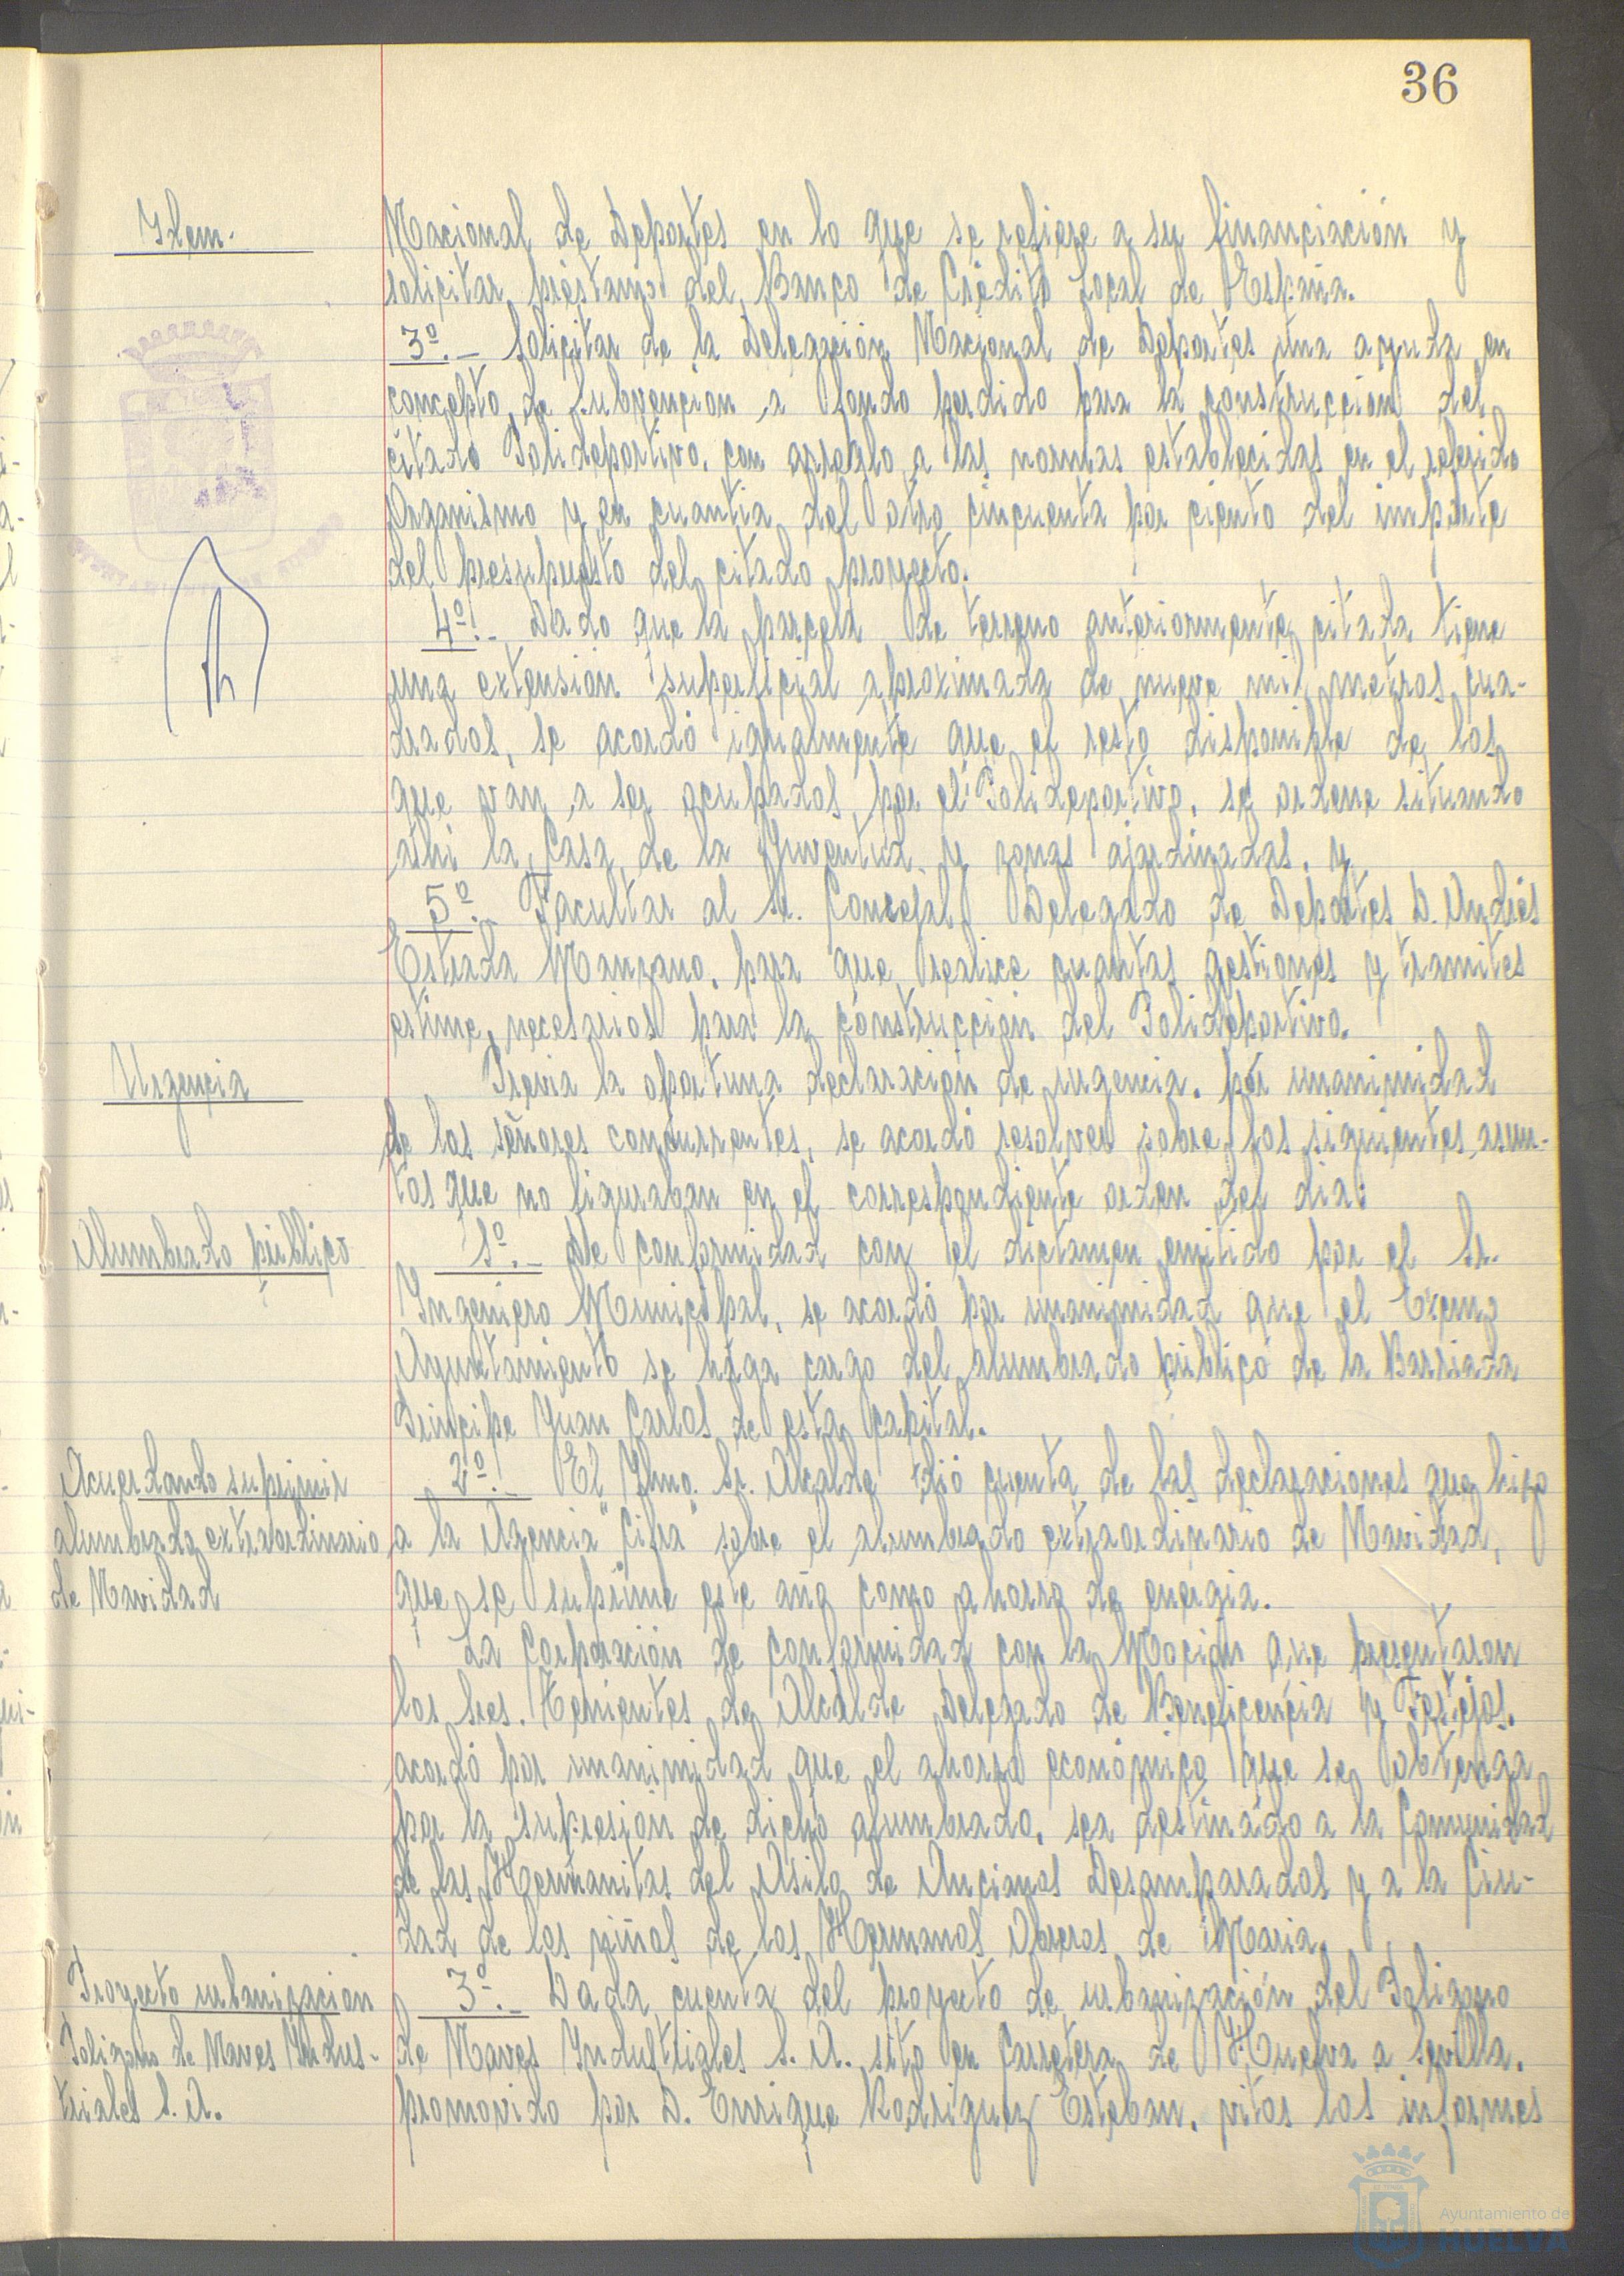 36
Idem.
Nacional de Deportes en lo que se refiere a su financiación y
solicitar préstamo del Banco de Crédito Local de España.
3º.- Solicitar de la Delegación Nacional de Deportes una ayuda en
concepto de subvención a fondo perdido para la construcción del
citado Polideportivo, con arreglo a las normas establecidas en el referido
Organismo y en cuantia del otro cincuenta por ciento del importe
del presupuesto del citado proyecto.
4º.- Dado que la parcela de terreno anteriormente citada tiene
una extensión superficial aproximada de nueve mil metros cua-
drados, se acordó igualmente que el resto disponible de los
que van a ser ocupados por el Polideportivo, se ordene situando
alli la Casa de la Juventud y zonas ajardinadas, y
5º.- Facultar al Sr. Concejal Delegado de Deportes D. Andrés
Estrada Manzano, para que realice cuantas gestiones y tramites
estime necesarios para la construcción del Polideportivo.
Urgencia
Previa la oportuna declaración de urgencia, por unanimidad
de los señores concurrentes, se acordó resolver sobre los siguientes asun-
tos que no figuraban en el correspondiente orden del dia:
Alumbrado público
1º.- De conformidad con el dictamen emitido por el Sr.
Ingeniero Municipal, se acordó por unanimidad que el Excmo
Ayuntamiento se haga cargo del alumbrado público de la Barriada
Principe Juan Carlos de esta capital.
Acuerdando suprimir
alumbrado extraordinario
de Navidad
2º.- El Ilmo. Sr. Alcalde dió cuenta de las declaraciones que hizo
a la Agencia "Cifra" sobre el alumbrado extraordinario de Navidad,
que se suprime este año como ahorro de energia.
La Corporación de conformidad con la Moción que presentaron
los Sres. Tenientes de Alcalde Delegado de Beneficencia y Festejos,
acordó por unanimidad que el ahorro económico que se obtenga
por la supresión de dicho alumbrado, sea destinado a la Comunidad
de las Hermanitas del Asilo de Ancianos Desamparados y a la Ciu-
dad de los niños de los Hermanos Obreros de Maria.
Proyecto urbanizacion
Poligono de Naves Indus-
triales S.A.
3º.- Dada cuenta del proyecto de urbanización del Poligono
de Naves Industriales S.A. sito en Carretera de Huelva a Sevilla,
promovido por D. Enrique Rodriguez Esteban, vitos los informes
Ayuntamiento de
HUELVA